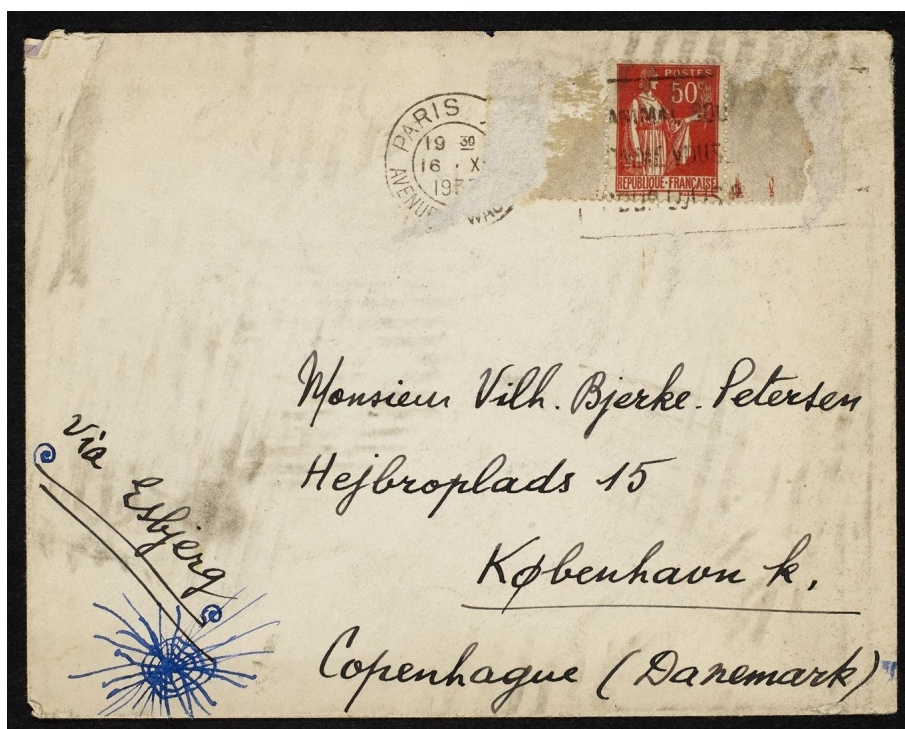 PARIS
19 30
16 · X
AVENUE
POSTES
50c
REPUBLIQUE-FRANÇAISE
Monsieur Vilh. Bjerke-Petersen
Hejbroplads 15
København k,
Copenhague (Danemark)
Via Esbjerg